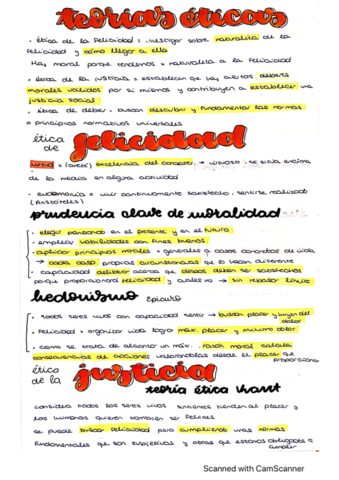 teorías éticas
· ética de la Felicidad = investigar sobre naturaleza de la
Felicidad y cómo llegar a ella
Hay moral porque tendemos x naturaleza a la Felicidad
· ética de la justicia = establecer que hay ciertos deberes
morales válidos por sí mismos y contribuyen a establecer una
justicia social
· ética de deber = buscan descubrir y fundamentar las normas
o principios normativos universales
ética
de felicidad
virtud = (areté) excelencia del caracter → virtuoso = se sitúa encima
de la media en alguna actividad
· eudemonía = vivir continuamente satisfecho, sentirse realizado
(Aristóteles)
prudencia clave de moralidad
· elegir pensando en el presente y en el futuro
· emplear habilidades con fines buenos
· aplicar principios morales = generales a casos concretos de vida
→ cada caso propias circunstancias que lo hacen diferente
· capacidad deliberar acerca que deseos deben ser satisfechos
porque proporcionarán felicidad y cuales no → sin rebasar límites
hedonismo Epicuro
· todos seres vivos con capacidad sentir → buscan placer y huyen del
dolor
· Felicidad = organizar vida lograr máx. placer y mínimo dolor
· como se trata de alcanzar un máx. razón moral calcula
consecuencias de acciones valorandolas desde el placer que
proporcionan
ética
de la justicia
teoría ética Kant
considera todos los seres vivos sintientes tienden al placer y
los humanos quieren también ser Felices
se puede buscar felicidad pero cumpliendo unas normas
Fundamentales que son subjetivas y otras que estamos obligados a
cumplir
Scanned with CamScanner